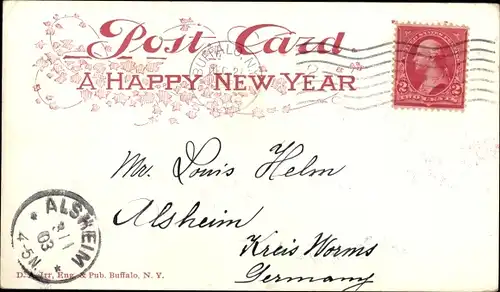 Post Card.
A HAPPY NEW YEAR
BUFFALO, N.Y.
2 2
Mr. Louis Helm
Alsheim
Kreis Worms
Germany
ALSHEIM
03
4-5N.
Eng. & Pub. Buffalo, N. Y.